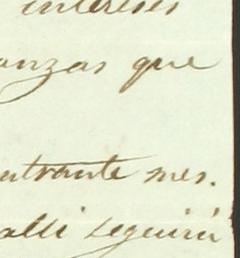 intereses
anzas que
entrante mes.
alli seguirá